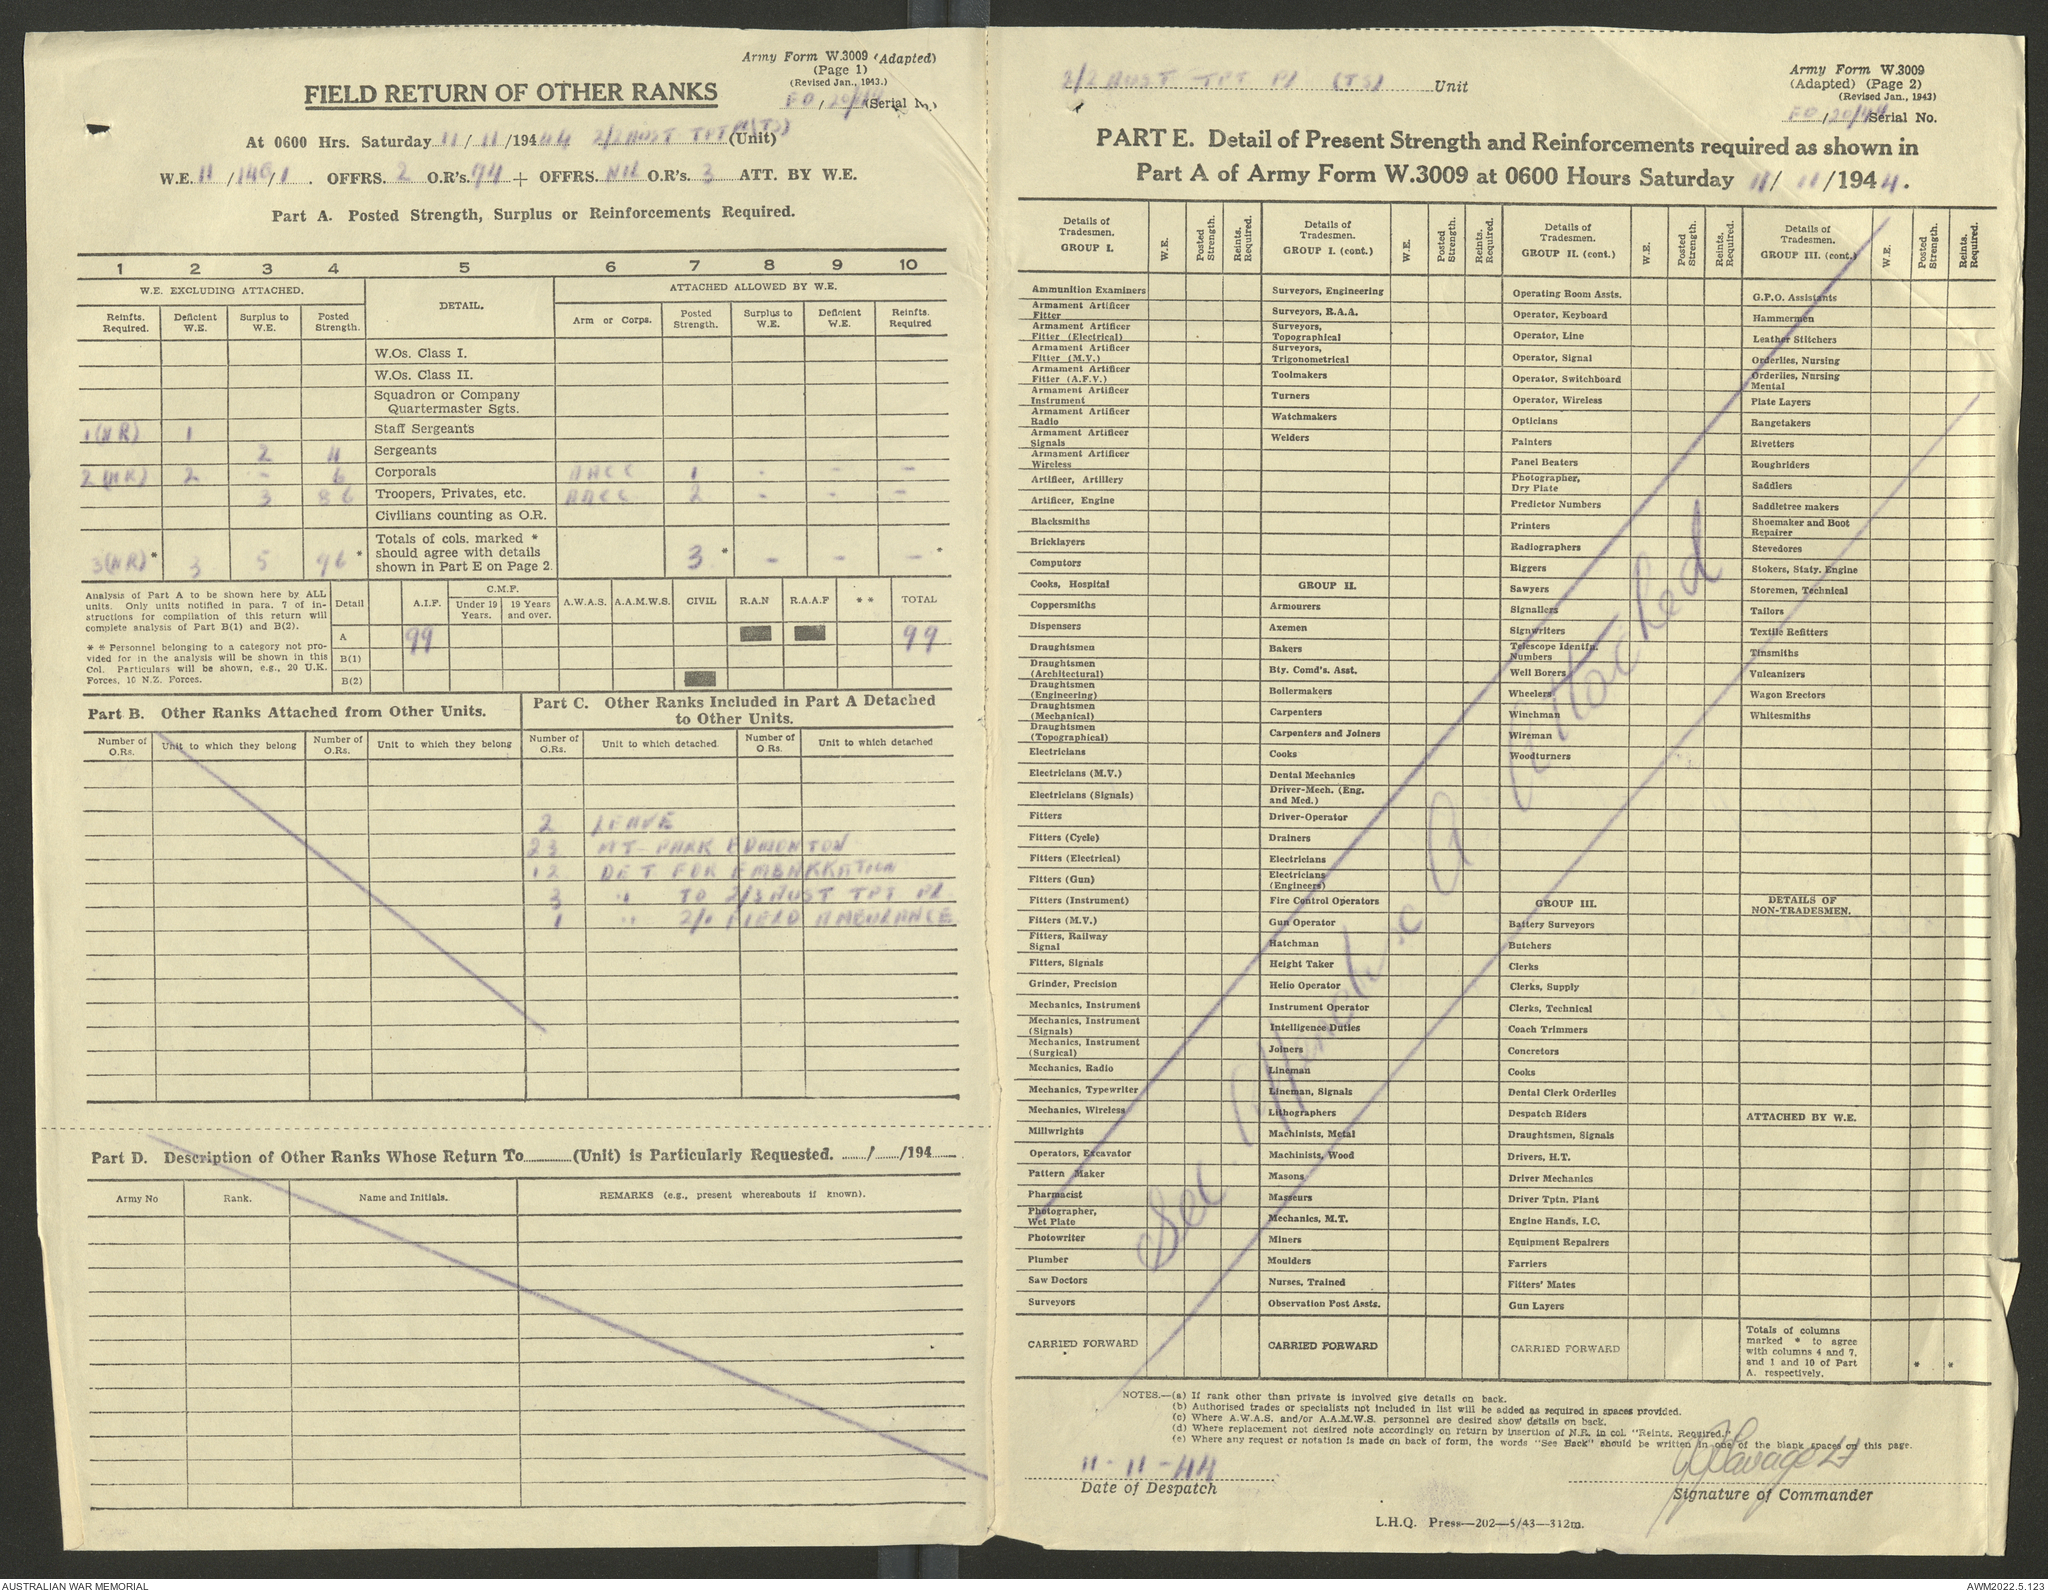 Army Form W.3009 (Adapted)
(Page 1)
(Revised Jan., 1943.)
FIELD RETURN OF OTHER RANKS
FO / 20/44 Serial No.
At 0600 Hrs. Saturday 11 / 11 /1944 44 2/2 AUST TPT Pl (TS) (Unit)
W.E. 11 /140/1 . OFFRS. 2 O.R's. 94 + OFFRS. NIL O.R's. 3 ATT. BY W.E.
Part A. Posted Strength, Surplus or Reinforcements Required.
1 2 3 4 5 6 7 8 9 10
W.E. EXCLUDING ATTACHED. DETAIL. ATTACHED ALLOWED BY W.E.
Reinfts. Required. Deficient W.E. Surplus to W.E. Posted Strength. Arm or Corps. Posted Strength. Surplus to W.E. Deficient W.E. Reinfts. Required
W.Os. Class I.
W.Os. Class II.
Squadron or Company
Quartermaster Sgts.
1 (NR) 1 Staff Sergeants
2 4 Sergeants
2 (NR) 2 - 6 Corporals AACC 1 - - -
3 86 Troopers, Privates, etc. AACC 2 - - -
Civilians counting as O.R.
Totals of cols. marked *
should agree with details
shown in Part E on Page 2.
3 (NR) * 3 5 96 * 3 * - - - *
Analysis of Part A to be shown here by ALL
units. Only units notified in para. 7 of in-
structions for compilation of this return will
complete analysis of Part B(1) and B(2).
* * Personnel belonging to a category not pro-
vided for in the analysis will be shown in this
Col. Particulars will be shown, e.g., 20 U.K.
Forces, 10 N.Z. Forces.
Detail A.I.F. C.M.F. Under 19 Years. 19 Years and over. A.W.A.S. A.A.M.W.S. CIVIL R.A.N R.A.A.F * * TOTAL
A 99 99
B(1)
B(2)
Part B. Other Ranks Attached from Other Units.
Number of O.Rs. Unit to which they belong Number of O.Rs. Unit to which they belong
Part C. Other Ranks Included in Part A Detached
to Other Units.
Number of O.Rs. Unit to which detached Number of O Rs. Unit to which detached
2 LEAVE
23 MT PARK EDMONTON
12 DET FOR EMBARKATION
3 " TO 2/3 AUST TPT Pl
1 " FIELD AMBULANCE
Part D. Description of Other Ranks Whose Return To (Unit) is Particularly Requested. / /194
Army No Rank. Name and Initials. REMARKS (e.g., present whereabouts if known).
2/2 AUST TPT Pl (TS) Unit
Army Form W.3009
(Adapted) (Page 2)
(Revised Jan., 1943)
FO /20/44 Serial No.
PART E. Detail of Present Strength and Reinforcements required as shown in
Part A of Army Form W.3009 at 0600 Hours Saturday 11/ 11 /194 4.
Details of Tradesmen. GROUP I. W.E. Posted Strength. Reints. Required.
Ammunition Examiners
Armament Artificer Fitter
Armament Artificer Fitter (Electrical)
Armament Artificer Fitter (M.V.)
Armament Artificer Fitter (A.F.V.)
Armament Artificer Instrument
Armament Artificer Radio
Armament Artificer Signals
Armament Artificer Wireless
Artificer, Artillery
Artificer, Engine
Blacksmiths
Bricklayers
Computors
Cooks, Hospital
Coppersmiths
Dispensers
Draughtsmen
Draughtsmen (Architectural)
Draughtsmen (Engineering)
Draughtsmen (Mechanical)
Draughtsmen (Topographical)
Electricians
Electricians (M.V.)
Electricians (Signals)
Fitters
Fitters (Cycle)
Fitters (Electrical)
Fitters (Gun)
Fitters (Instrument)
Fitters (M.V.)
Fitters, Railway Signal
Fitters, Signals
Grinder, Precision
Mechanics, Instrument
Mechanics, Instrument (Signals)
Mechanics, Instrument (Surgical)
Mechanics, Radio
Mechanics, Typewriter
Mechanics, Wireless
Millwrights
Operators, Excavator
Pattern Maker
Pharmacist
Photographer, Wet Plate
Photowriter
Plumber
Saw Doctors
Surveyors
CARRIED FORWARD
Details of Tradesmen. GROUP I. (cont.) W.E. Posted Strength. Reints. Required.
Surveyors, Engineering
Surveyors, R.A.A.
Surveyors, Topographical
Surveyors, Trigonometrical
Toolmakers
Turners
Watchmakers
Welders
GROUP II.
Armourers
Axemen
Bakers
Bty. Comd's. Asst.
Boilermakers
Carpenters
Carpenters and Joiners
Cooks
Dental Mechanics
Driver-Mech. (Eng. and Med.)
Driver-Operator
Drainers
Electricians
Electricians (Engineers)
Fire Control Operators
Gun Operator
Hatchman
Height Taker
Helio Operator
Instrument Operator
Intelligence Duties
Joiners
Lineman
Lineman, Signals
Lithographers
Machinists, Metal
Machinists, Wood
Masons
Masseurs
Mechanics, M.T.
Miners
Moulders
Nurses, Trained
Observation Post Assts.
CARRIED FORWARD
Details of Tradesmen. GROUP II. (cont.) W.E. Posted Strength. Reints. Required.
Operating Room Assts.
Operator, Keyboard
Operator, Line
Operator, Signal
Operator, Switchboard
Operator, Wireless
Opticians
Painters
Panel Beaters
Photographer, Dry Plate
Predictor Numbers
Printers
Radiographers
Riggers
Sawyers
Signallers
Signwriters
Telescope Identfn. Numbers
Well Borers
Wheelers
Winchman
Wireman
Woodturners
GROUP III.
Battery Surveyors
Butchers
Clerks
Clerks, Supply
Clerks, Technical
Coach Trimmers
Concretors
Cooks
Dental Clerk Orderlies
Despatch Riders
Draughtsmen, Signals
Drivers, H.T.
Driver Mechanics
Driver Tptn. Plant
Engine Hands, I.C.
Equipment Repairers
Farriers
Fitters' Mates
Gun Layers
CARRIED FORWARD
Details of Tradesmen. GROUP III. (cont.) W.E. Posted Strength. Reints. Required.
G.P.O. Assistants
Hammermen
Leather Stitchers
Orderlies, Nursing
Orderlies, Nursing Mental
Plate Layers
Rangetakers
Rivetters
Roughriders
Saddlers
Saddletree makers
Shoemaker and Boot Repairer
Stevedores
Stokers, Staty. Engine
Storemen, Technical
Tailors
Textile Refitters
Tinsmiths
Vulcanizers
Wagon Erectors
Whitesmiths
DETAILS OF NON-TRADESMEN.
ATTACHED BY W.E.
Totals of columns
marked * to agree
with columns 4 and 7,
and 1 and 10 of Part
A. respectively.
* *
See Appendix A Attached
NOTES.—(a) If rank other than private is involved give details on back.
(b) Authorised trades or specialists not included in list will be added as required in spaces provided.
(c) Where A.W.A.S. and/or A.A.M.W.S. personnel are desired show details on back.
(d) Where replacement not desired note accordingly on return by insertion of N.R. in col. "Reints. Required."
(e) Where any request or notation is made on back of form, the words "See Back" should be written in one of the blank spaces on this page.
11-11-44
Date of Despatch
Savage Lt
Signature of Commander
L.H.Q. Press—202—5/43—312m.
AUSTRALIAN WAR MEMORIAL
AWM2022.5.123